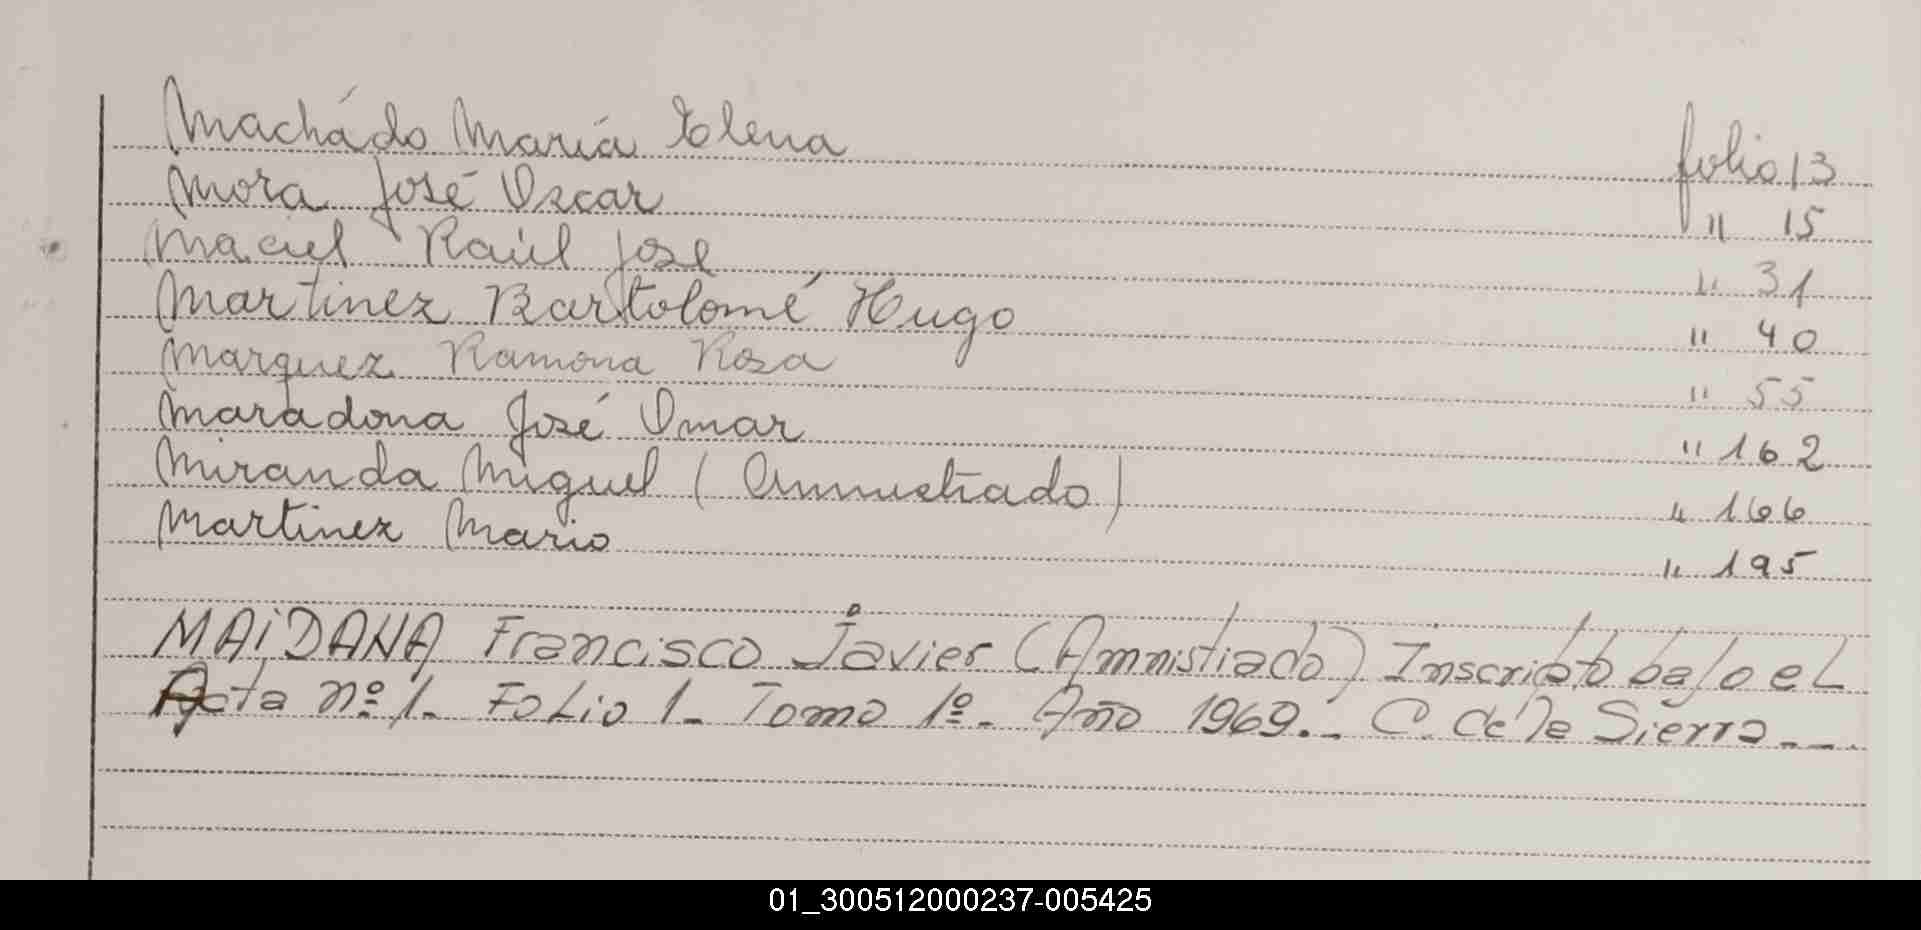 Machádo María Elena folio 13
Mora José Oscar " 15
Maciel Raúl José " 31
Martinez Bartolomé Hugo " 40
Marquez Ramona Rosa " 55
Maradona José Omar " 162
Miranda Miguel (Amnistiado) " 166
Martinez Mario " 195
MAiDANA Francisco Javier (Amnistiado) Inscripto bajo el
Acta nº 1- Folio 1- Tomo 1º- Año 1969.- C. de la Sierra--.
01_300512000237-005425